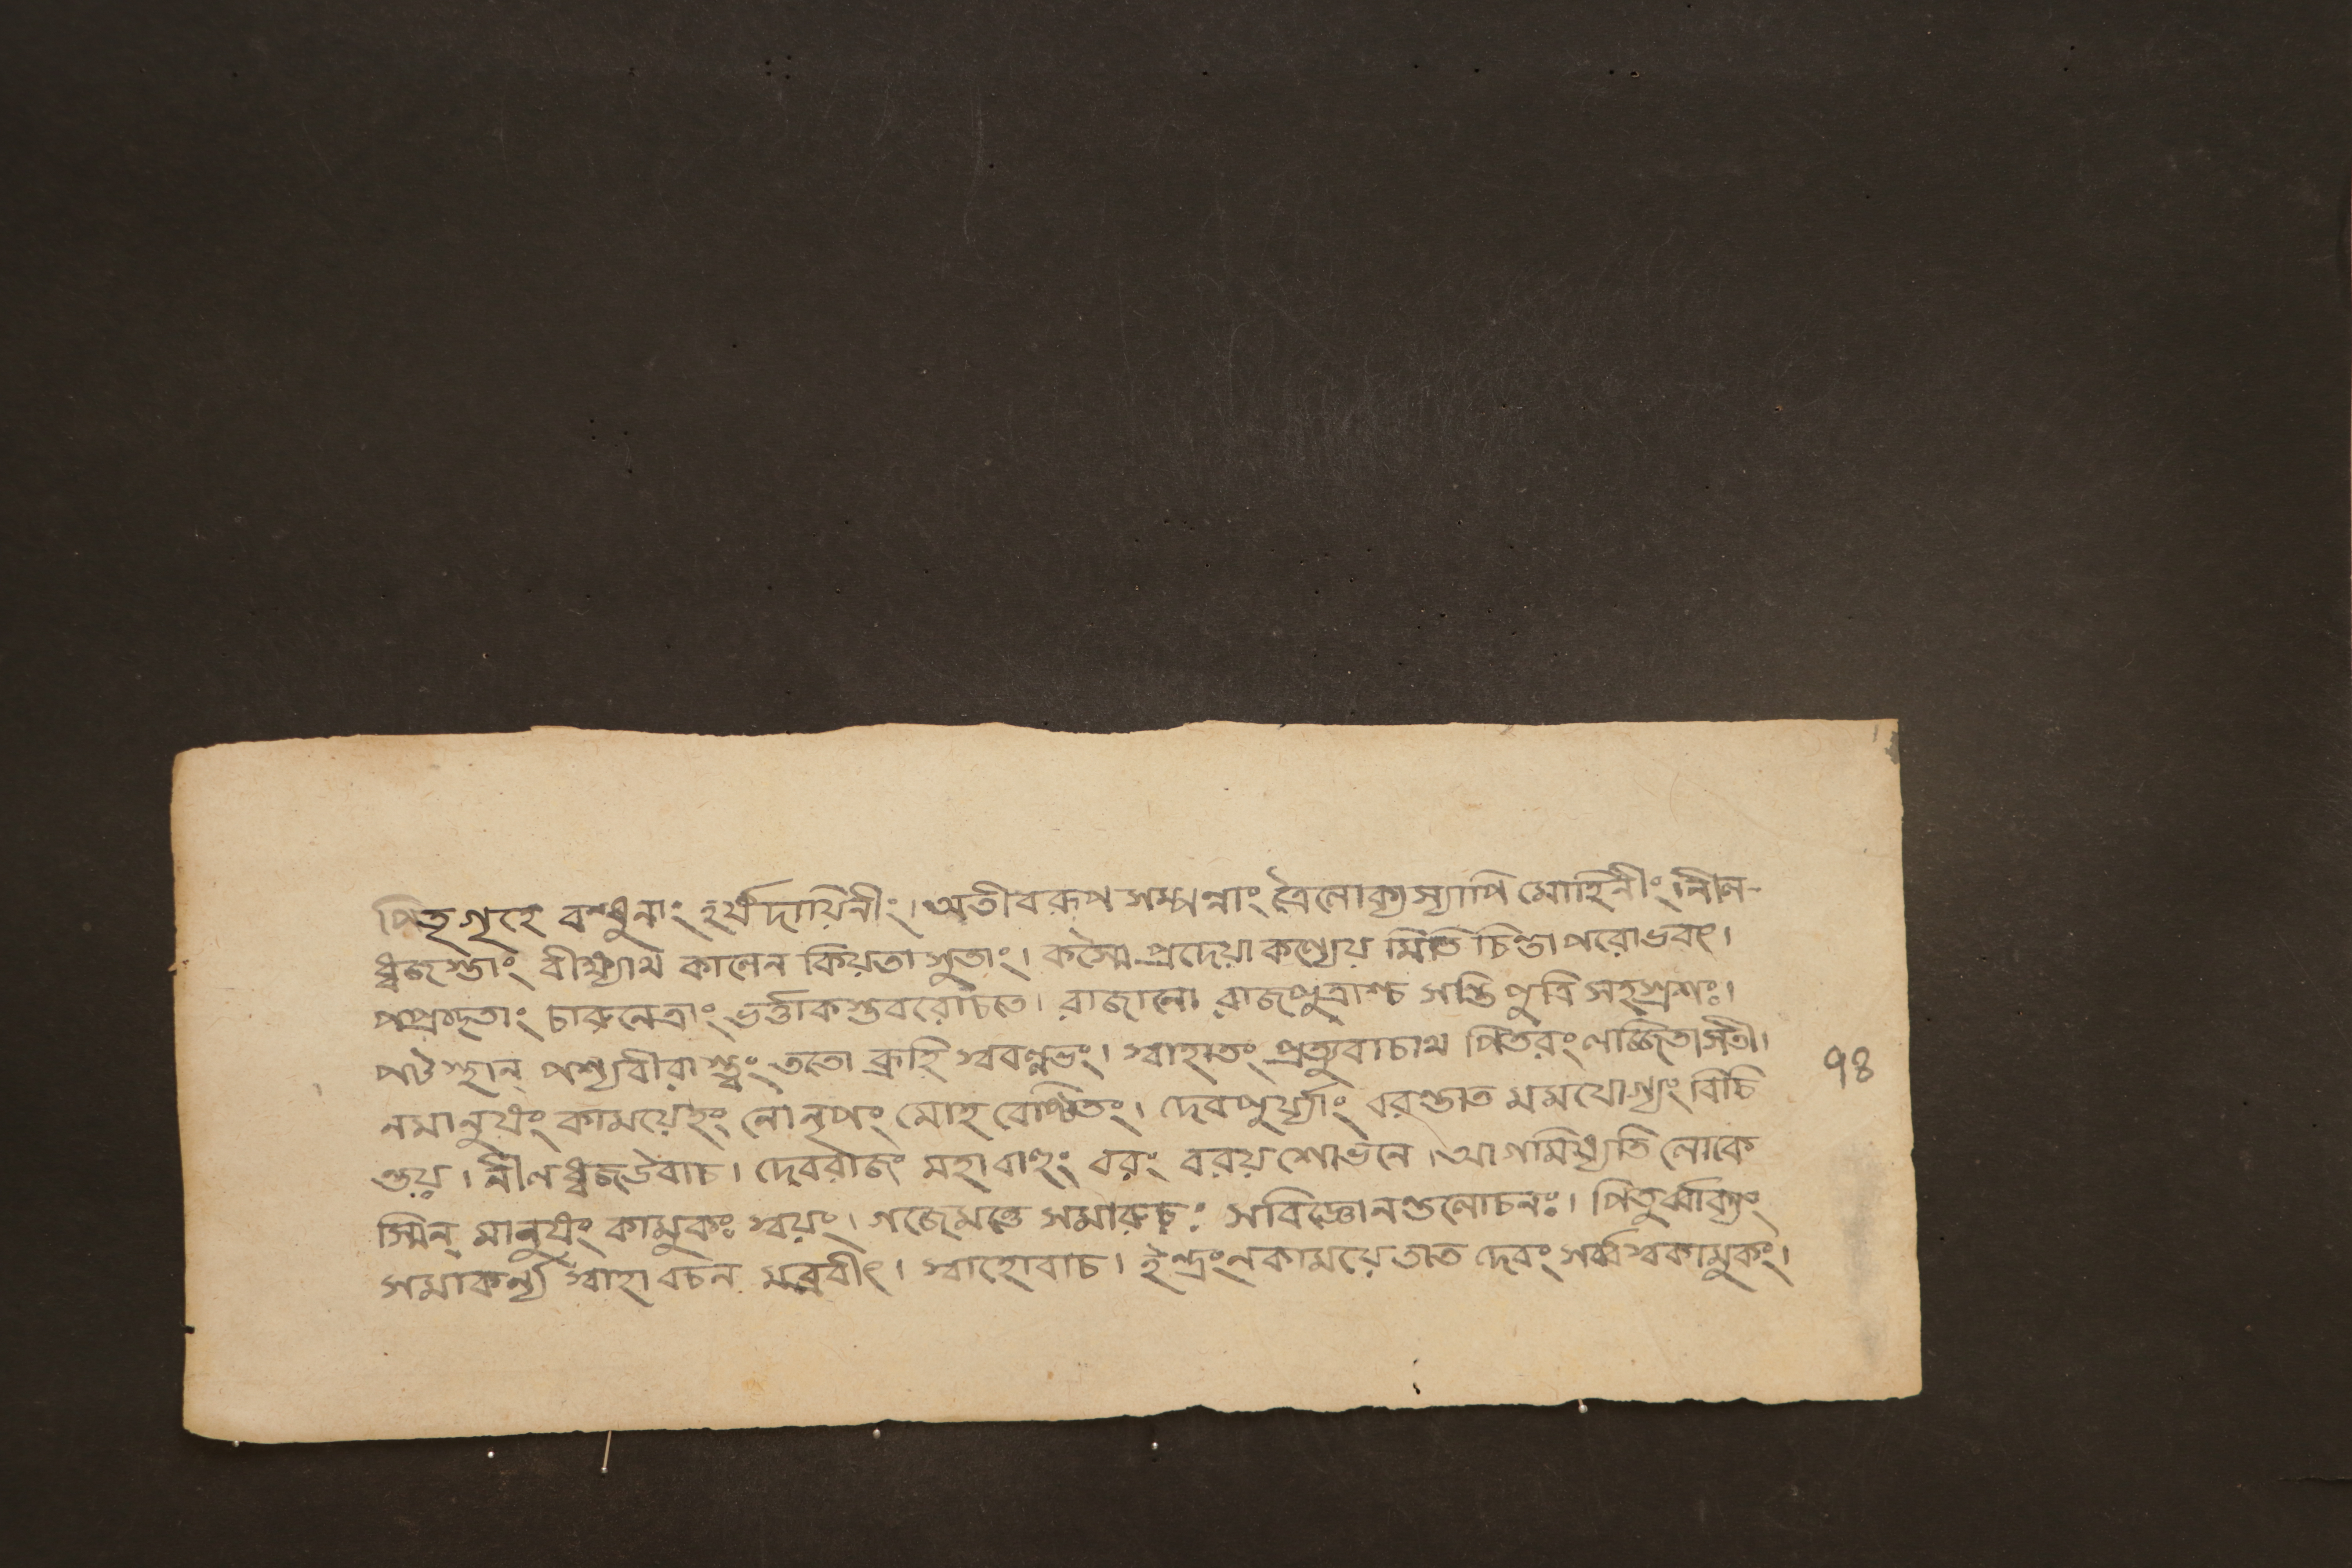 পিতৃগৃহে বন্ধুনাং হর্ষদায়িনীং। অতীবরূপসম্পন্নাং ত্রৈলোক্যস্যাপি মোহিনীং। নীল-
ধ্বজস্তাং বীক্ষ্যাথ কালেন কিয়তা সুতাং। কস্মৈ প্রদেয়া কণ্যেয় মিতি চিন্তাপরোভবৎ।
পপ্রচ্ছতাং চারুনেত্রাং ভর্ত্তাকস্তবরোচতে। রাজানো রাজপুত্রাশ্চ সন্তি পুত্রি সহস্রশঃ।
পটস্থান্ পশ্যবীরাস্ত্বং ততো ব্রূহি স্ববল্লভং। স্বাহাতং প্রত্যুবাচাথ পিতরং লজ্জিতাসতী।
নমানুষং কাময়েহং লোনৃপং মোহবেষ্টিতং। দেবপুর্য্যাং বরস্তাত মমযোগ্যং বিচি
ন্তয়। নীলধ্বজউবাচ। দেবরাজং মহাবাহুং বরং বরয়শোভনে। আগমিষ্যতি লোকে
স্মিন্ মানুষং কামুকঃ স্বয়ং। গজেমত্তে সমারূঢ়ঃ সবিজ্ঞোনশুলোচনঃ। পিতুর্ব্বাক্যং
সমাকর্ন্য স্বাহা বচন মব্রবীৎ। স্বাহোবাচ। ইন্দ্রংনকাময়েতাত দেবং সর্ব্বস্বকামুকং।
৭৪